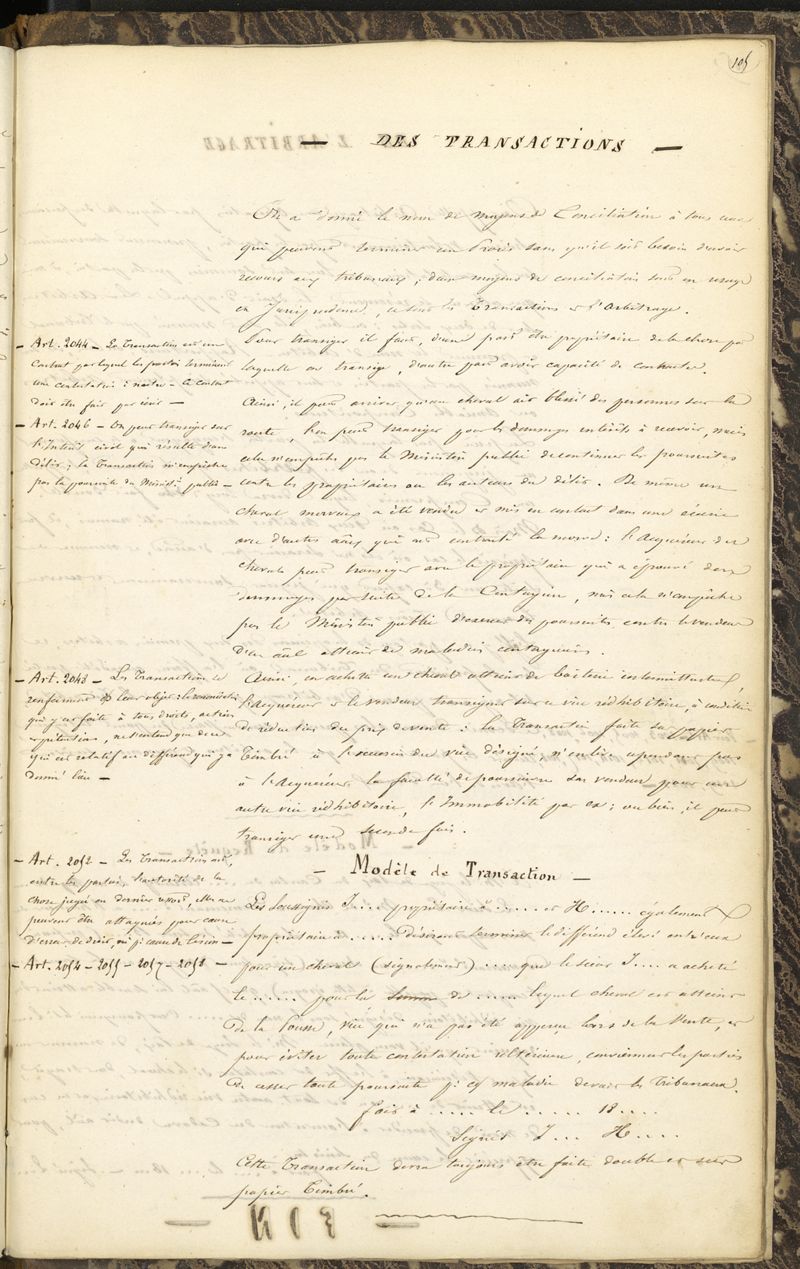 105
— DES TRANSACTIONS —
On a donné le nom de moyens de Conciliation à tous ceux
qui peuvent terminer un Procès sans qu'il soit besoin d'avoir
recours aux tribunaux ; deux moyens de conciliation sont en usage
en Jurisprudence, ce sont les Transactions et l'Arbitrage.
Pour transiger il faut, d'une part être propriétaire de la chose pour
laquelle on transige, d'autre part avoir capacité de contracter.
Ainsi, il peut arriver qu'un cheval ait blessé des personnes sur la
route, l'on peut transiger pour les dommages intérêts à recevoir, mais
cela n'empêche pas le Ministère public de continuer les poursuites
contre les propriétaires ou les auteurs du délit. De même un
cheval morveux a été vendu et mis en contact dans une écurie
avec d'autres qui ont contracté la morve : l'Acquéreur du
cheval peut transiger avec le propriétaire qui a éprouvé des
dommages par suite de la Contagion, mais cela n'empêche
pas le Ministère public d'exercer des poursuites contre le vendeur
d'un atteint de maladies contagieuses.
Ainsi, on achette un cheval atteint de boiterie intermittente,
l'Acquéreur et le vendeur transigent sur ce vice rédhibitoire, à condition
de réduction du prix de vente : la Transaction faite sur papier
Timbré à l'occasion du vice désigné, n'enlève cependant pas
à l'Acquéreur la faculté de poursuivre son vendeur pour un
autre vice rédhibitoire, l'Immobilité par ex : ou bien, il peut
transiger une seconde fois.
— Art. 2044 — La Transaction est un
Contrat par lequel les parties terminent
une contestation : naître — Ce contrat
doit être fait par écrit —
— Art. 2046 — On peut transiger sur
l'Intérêt civil qui résulte d'un
Délit ; la Transaction n'empêche
pas la poursuite du Ministè. public —
— Art. 2048 — Les Transactions se
renferment leur objet : la renonciation
qui y est faite à tous droits, actions
et prétentions, ne s'entend que de ce
qui est relatif au différend qui y a
donné lieu —
— Art. 2052 — Les Transactions ont,
entre les parties, l'autorité de la
chose jugée en dernier ressort, elles ne
peuvent être attaquées pour cause
d'erreur de droit, ni p. cause de lésion —
— Art. 2054 — 2055 — 2057 — 2058 —
— Modèle de Transaction —
Les Soussignés J.... propriétaire à ...... et H ...... également
propriétaire à ...... Désirant terminer le différend élevé entr'eux
pour un cheval (signalement) .... que le sieur J.... a acheté
le ...... pour la somme de ...... lequel cheval est atteint
de la Pousse, vice qui n'a pas été apperçu lors de la Vente, et
pour éviter toute contestation ultérieure, conviennent les parties
de cesser toute poursuite p. maladie devant les Tribunaux.
Fait à ...... le ...... 18....
Signés J... H....
Cette Transaction devra toujours être faite double et sur
papier Timbré.